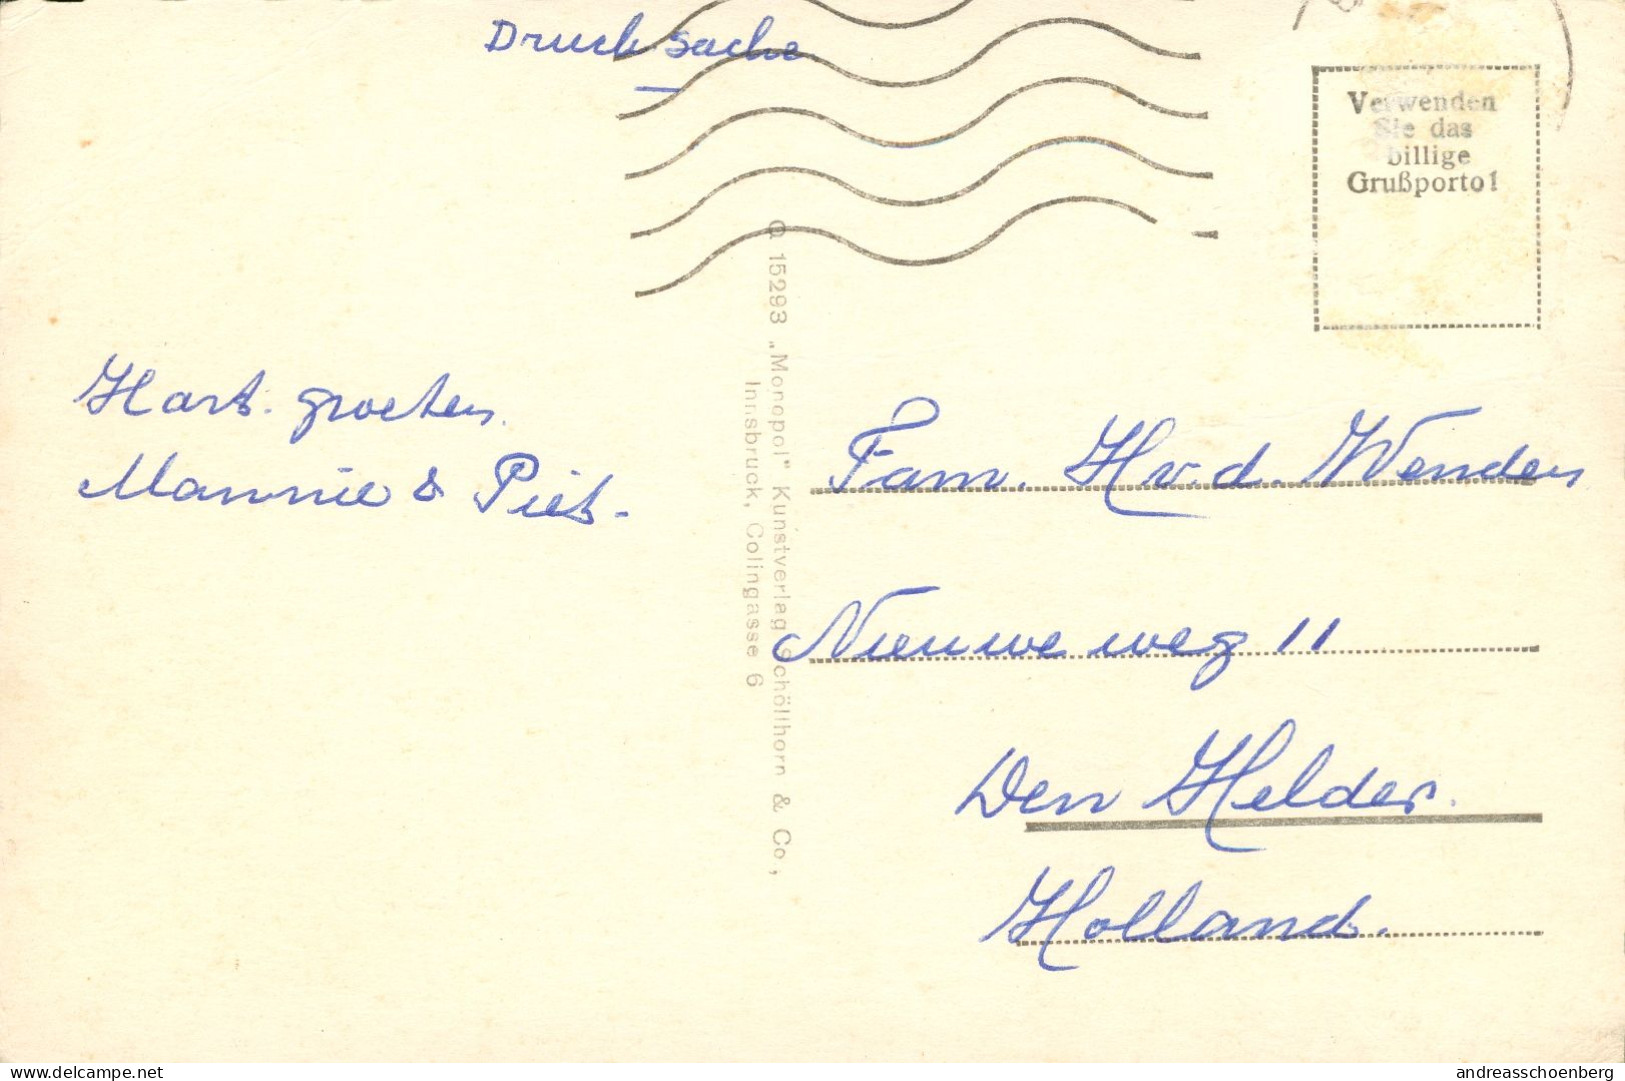 Drucksache
Verwenden
Sie das
billige
Grußporto!
Hart. groeten.
Mannie & Piet.
15293 „Monopol" Kunstverlag Schöllhorn & Co.,
Innsbruck, Colingasse 6
Fam. H v. d. Wenden
Nieuwe weg 11
Den Helder.
Holland.
www.delcampe.net
andreasschoenberg